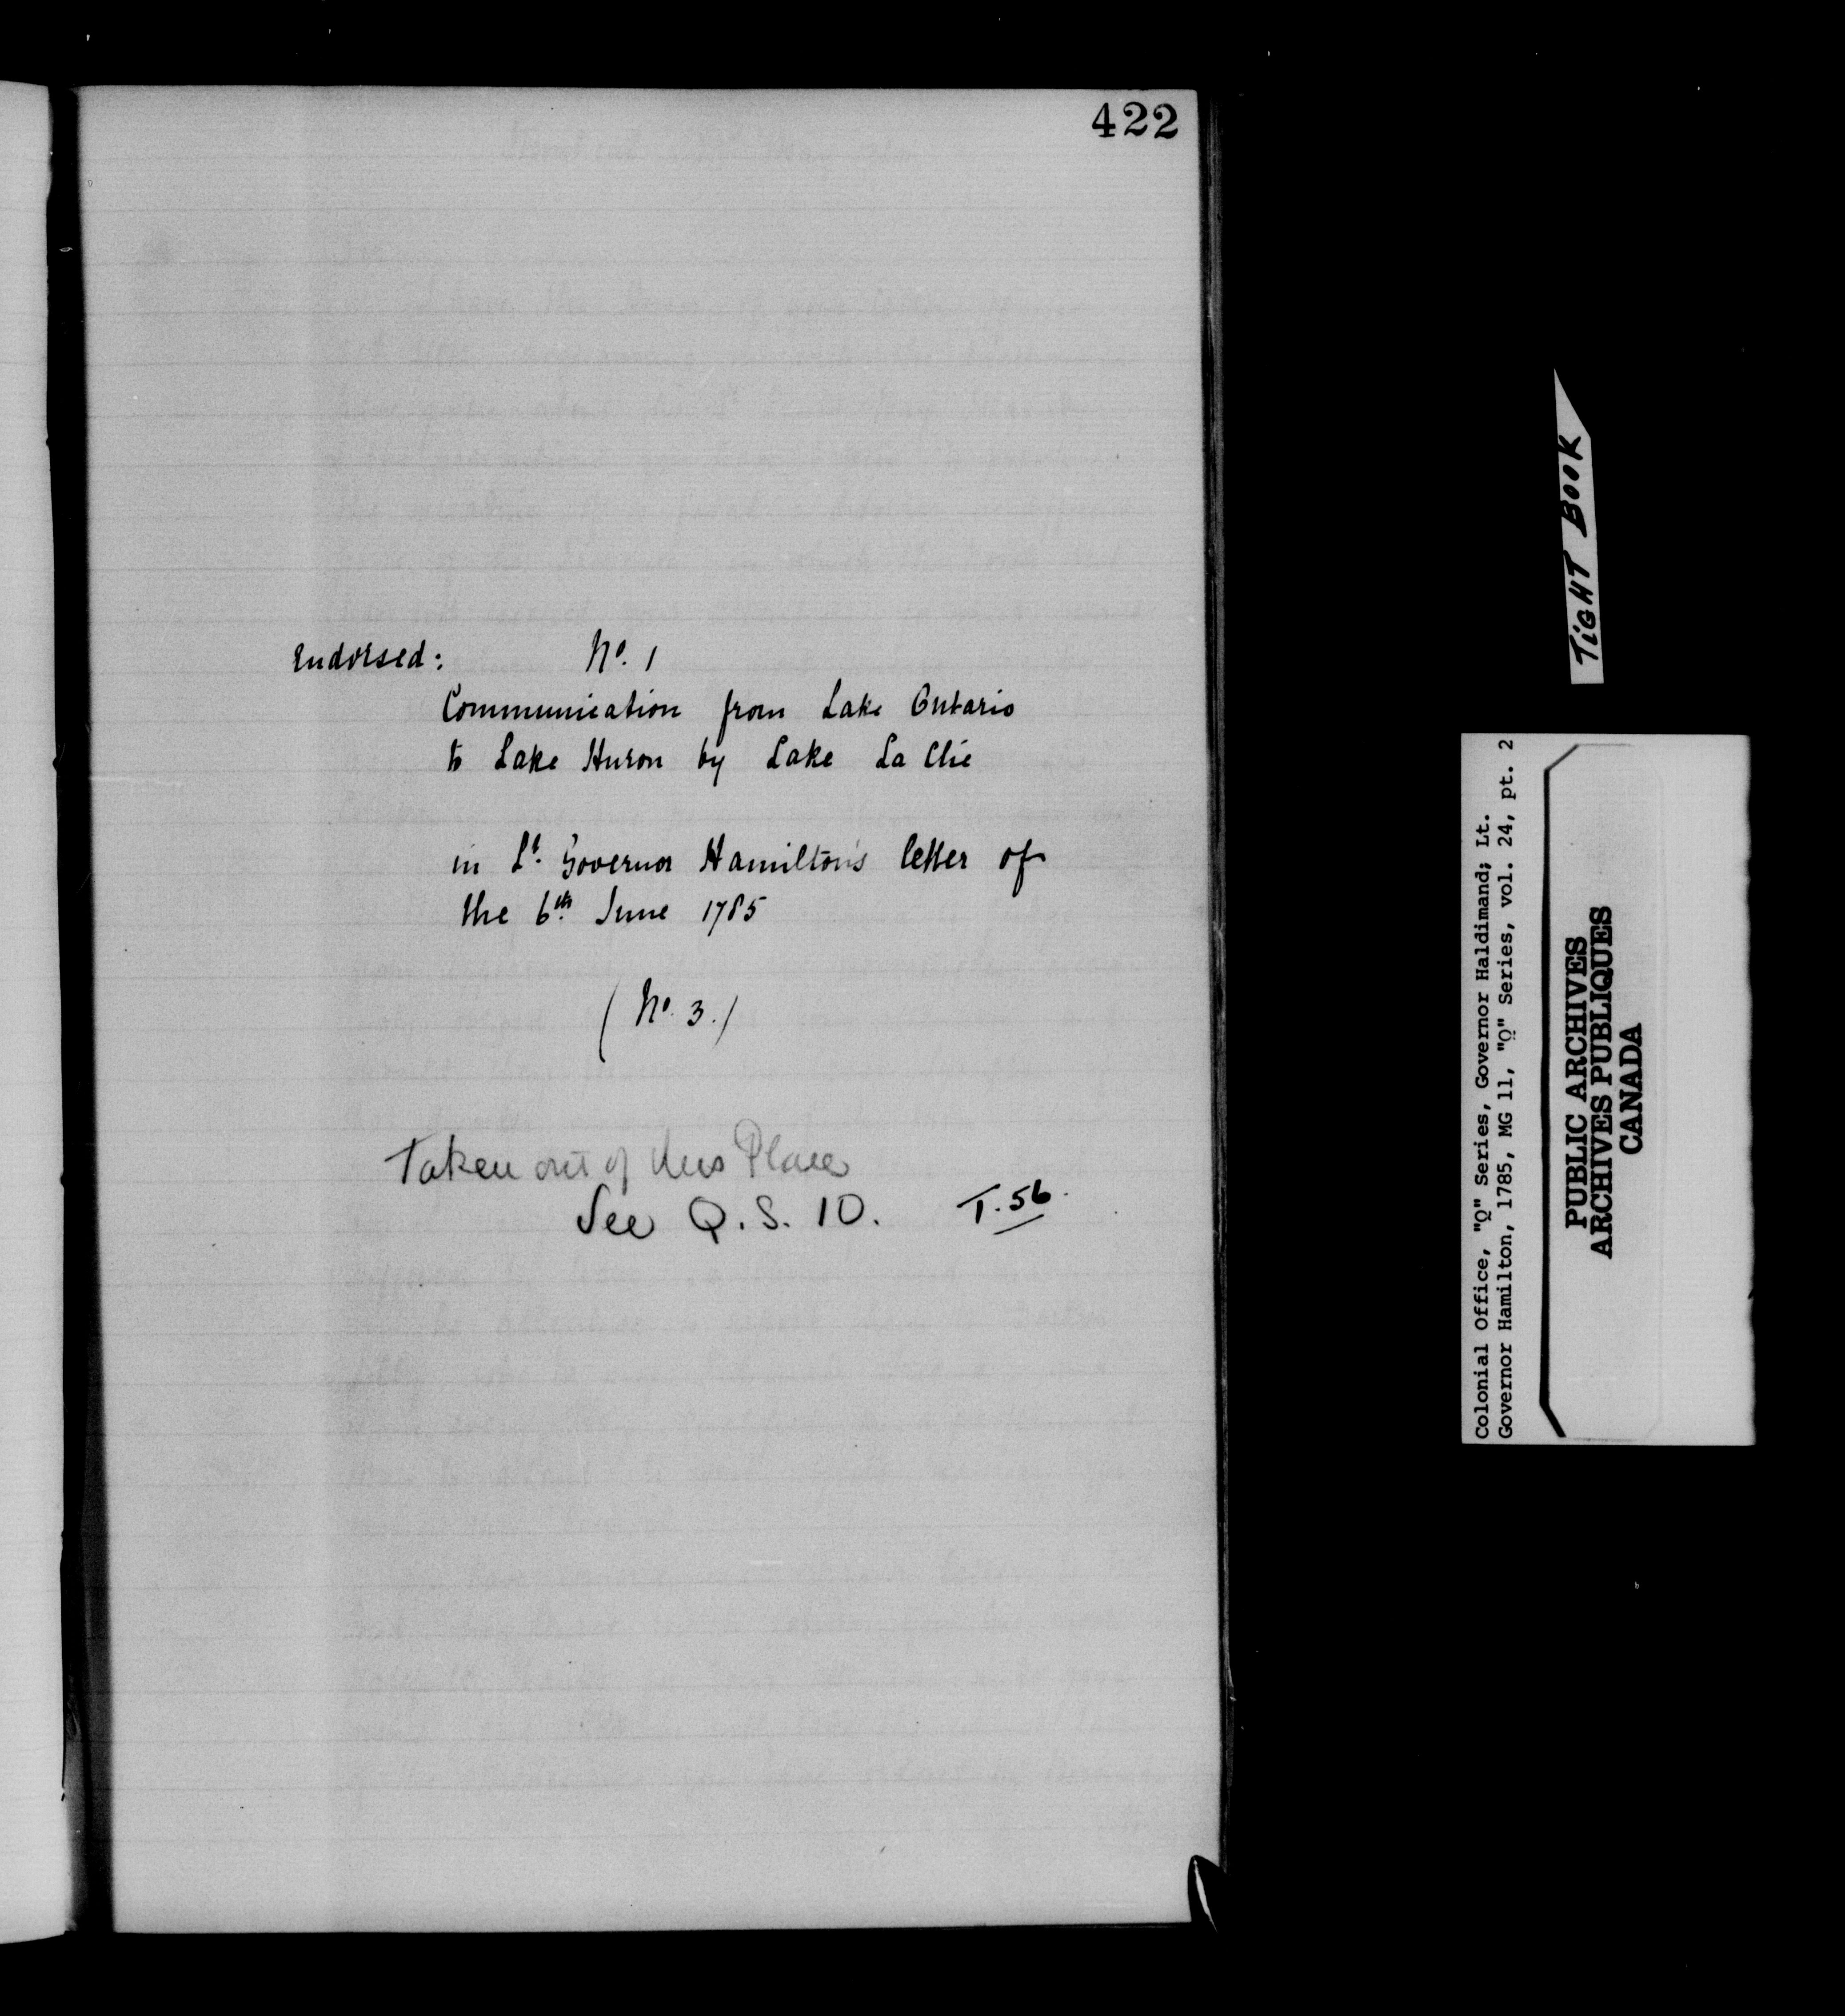 422
Endorsed: No. 1
Communication from Lake Ontario
to Lake Huron by Lake La Clie
in Lt. Governor Hamilton's letter of
the 6th June 1785
(No. 3.)
Taken out of this Place
See Q.S. 10. T.56.
TiGHT BOOK
Colonial Office, "Q" Series, Governor Haldimand; Lt.
Governor Hamilton, 1785, MG 11, "Q" Series, vol. 24, pt. 2
PUBLIC ARCHIVES
ARCHIVES PUBLIQUES
CANADA